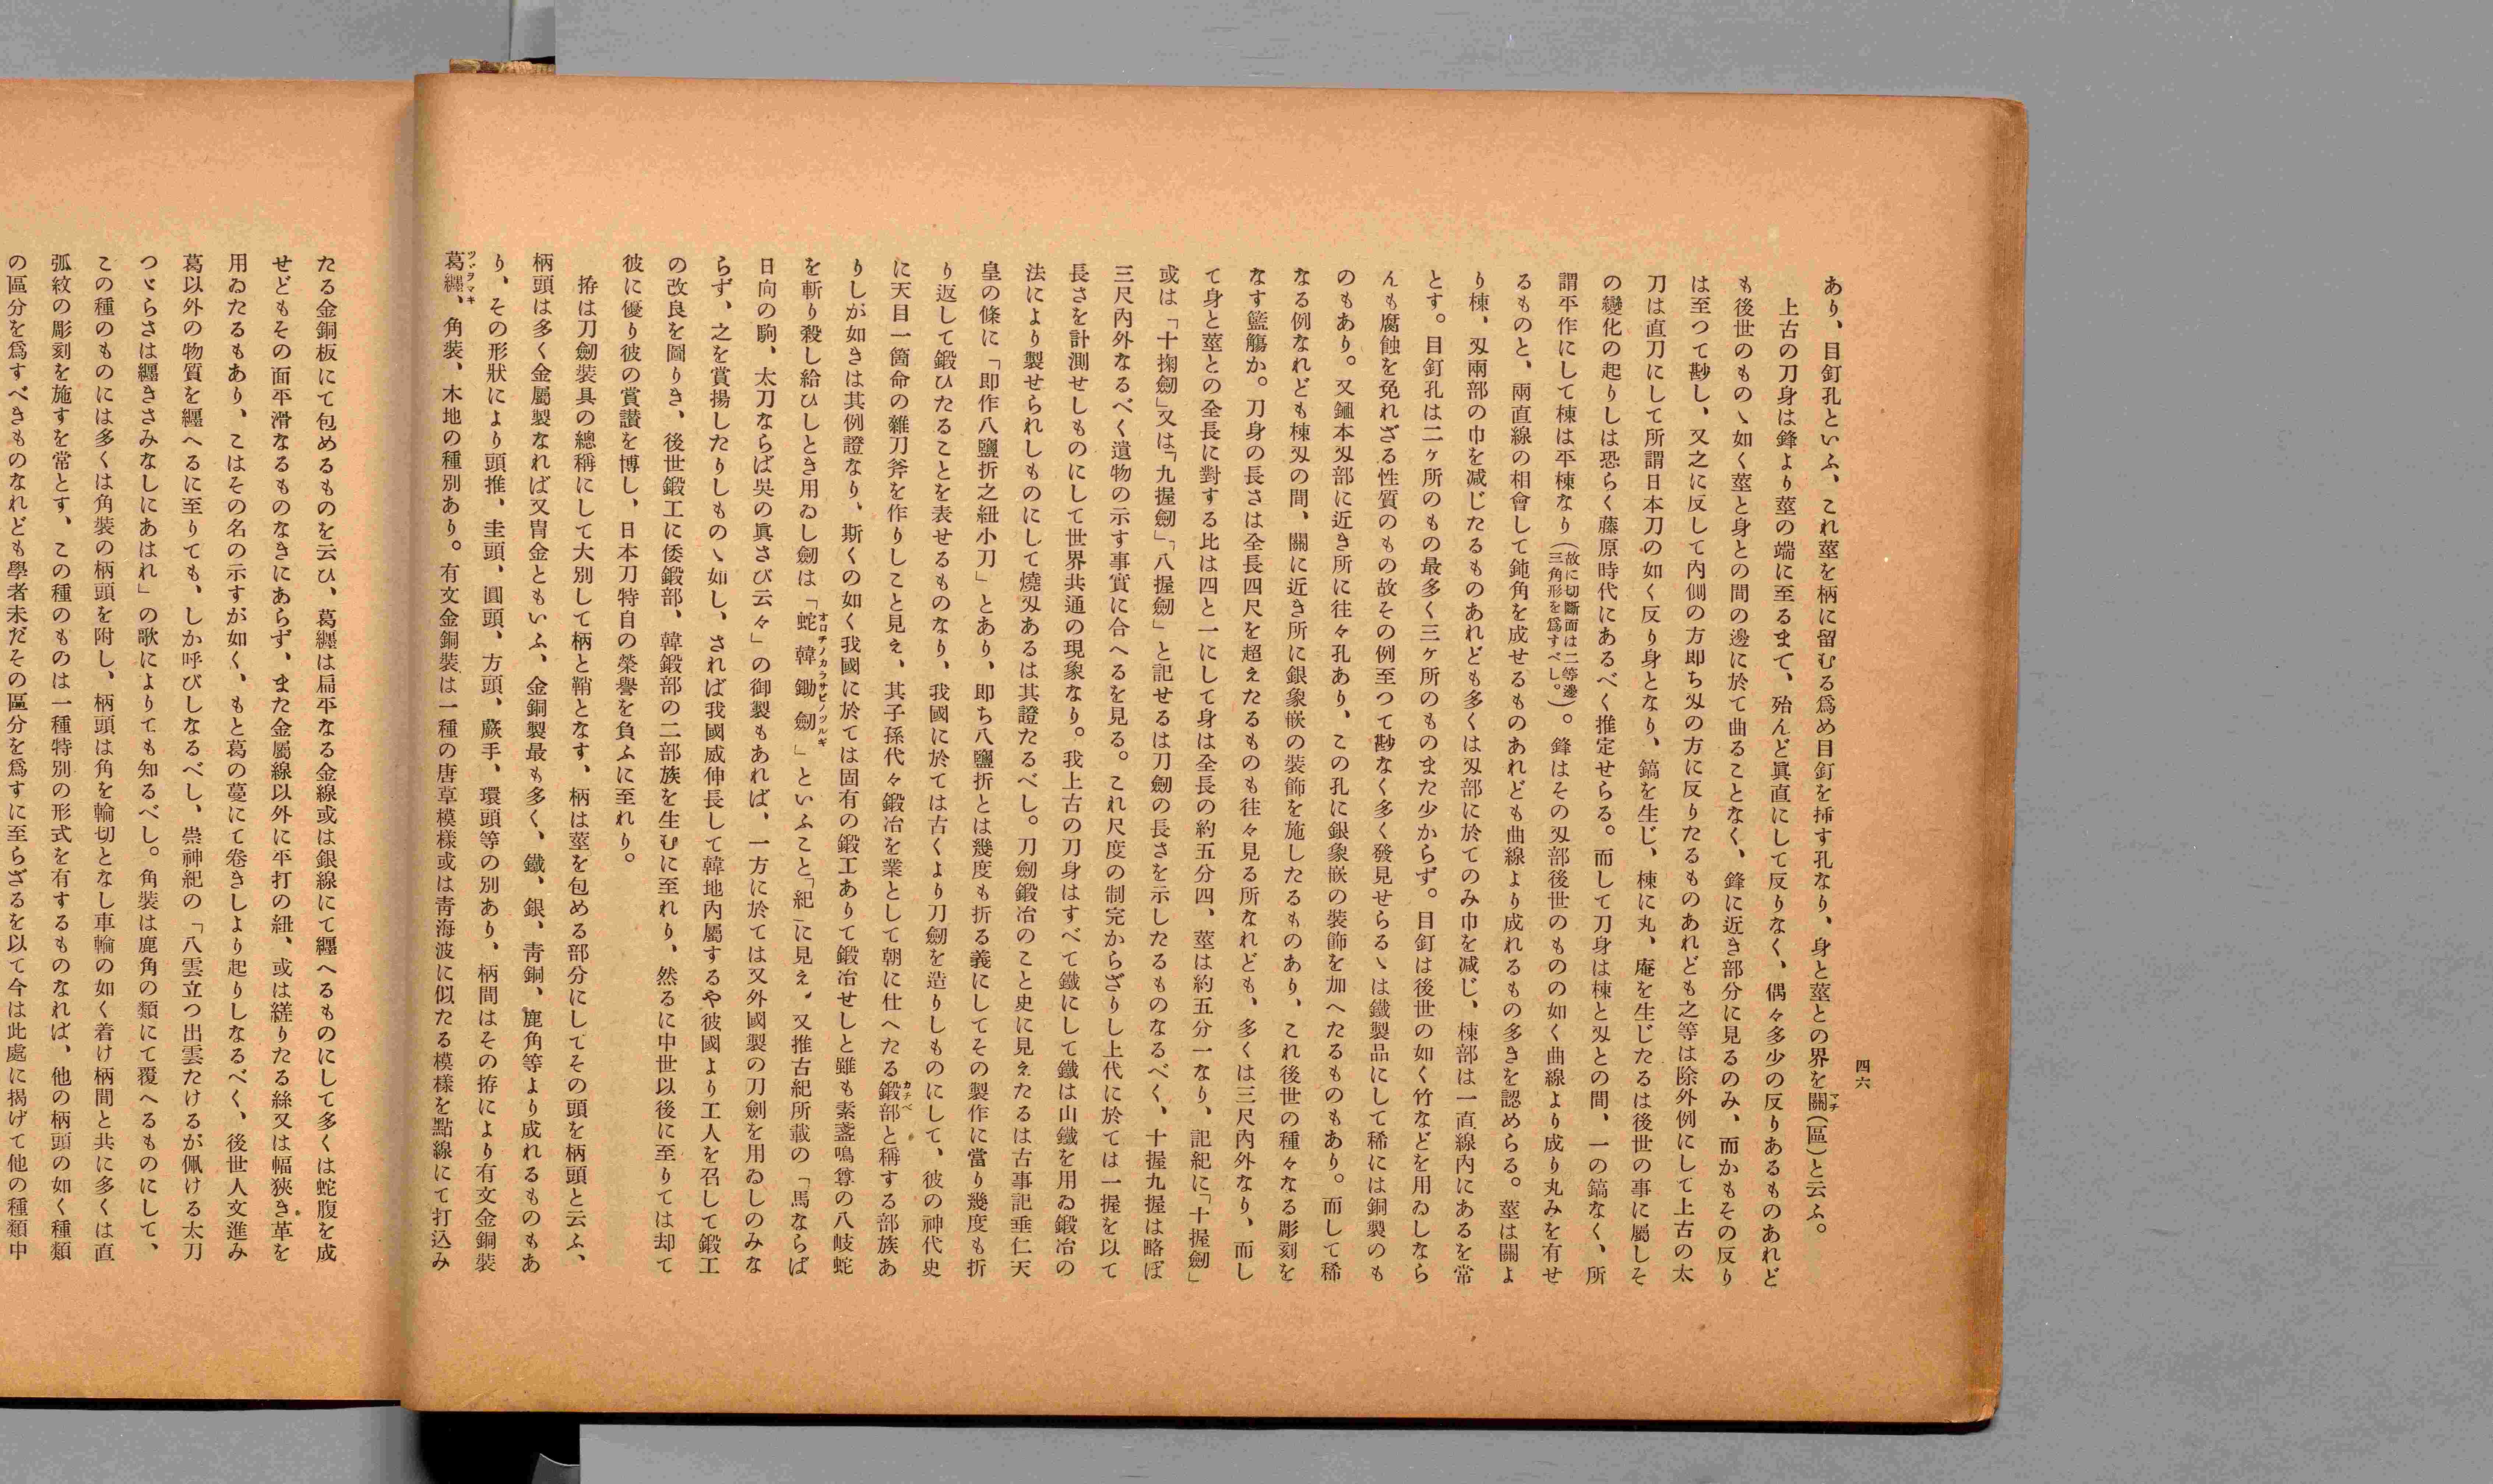 四六
あり、目釘孔といふ、これ莖を柄に留むる爲め目釘を挿す孔なり、身と莖との界を關(區)と云ふ。
マチ
上古の刀身は鋒より莖の端に至るまて、殆んど眞直にして反りなく、偶々多少の反りあるものあれど
も後世のものゝ如く莖と身との間の邊に於て曲ることなく、鋒に近き部分に見るのみ、而かもその反り
は至つて尠し、又之に反して內側の方即ち刄の方に反りたるものあれども之等は除外例にして上古の太
刀は直刀にして所謂日本刀の如く反り身となり、鎬を生じ、棟に丸、庵を生じたるは後世の事に屬しそ
の變化の起りしは恐らく藤原時代にあるべく推定せらる。而して刀身は棟と刄との間、一の鎬なく、所
謂平作にして棟は平棟なり(故に切斷面は二等邊三角形を爲すべし。)。鋒はその刄部後世のものの如く曲線より成り丸みを有せ
るものと、兩直線の相會して鈍角を成せるものあれども曲線より成れるもの多きを認めらる。莖は關よ
り棟、刄兩部の巾を減じたるものあれども多くは刄部に於てのみ巾を減じ、棟部は一直線內にあるを常
とす。目釘孔は二ヶ所のもの最多く三ヶ所のものまた少からず。目釘は後世の如く竹などを用ゐしなら
んも腐蝕を免れざる性質のもの故その例至つて尠なく多く發見せらるゝは鐵製品にして稀には銅製のも
のもあり。又鎺本刄部に近き所に往々孔あり、この孔に銀象嵌の裝飾を加へたるものもあり。而して稀
なる例なれども棟刄の間、關に近き所に銀象嵌の裝飾を施したるものあり、これ後世の種々なる彫刻を
なす籃觴か。刀身の長さは全長四尺を超えたるものも往々見る所なれども、多くは三尺內外なり、而し
て身と莖との全長に對する比は四と一にして身は全長の約五分四、莖は約五分一なり、記紀に「十握劒」
或は「十掬劒」又は「九握劒」「八握劒」と記せるは刀劒の長さを示したるものなるべく、十握九握は略ぼ
三尺內外なるべく遺物の示す事實に合へるを見る。これ尺度の制完からざりし上代に於ては一握を以て
長さを計測せしものにして世界共通の現象なり。我上古の刀身はすべて鐵にして鐵は山鐵を用ゐ鍛冶の
法により製せられしものにして燒刄あるは其證たるべし。刀劒鍛冶のこと史に見えたるは古事記垂仁天
皇の條に「即作八鹽折之紐小刀」とあり、即ち八鹽折とは幾度も折る義にしてその製作に當り幾度も折
り返して鍛ひたることを表せるものなり、我國に於ては古くより刀劒を造りしものにして、彼の神代史
に天目一箇命の雜刀斧を作りしこと見え、其子孫代々鍛冶を業として朝に仕へたる鍛部と稱する部族あ
カチベ
りしが如きは其例證なり、斯くの如く我國に於ては固有の鍛工ありて鍛冶せしと雖も素盞鳴尊の八岐蛇
を斬り殺し給ひしとき用ゐし劒は「蛇韓鋤劒」といふこと「紀」に見え、又推古紀所載の「馬ならば
オロチノカラサビノツルギ
日向の駒、太刀ならば吳の眞さび云々」の御製もあれば、一方に於ては又外國製の刀劍を用ゐしのみな
らず、之を賞揚したりしものゝ如し、されば我國威伸長して韓地內屬するや彼國より工人を召して鍛工
の改良を圖りき、後世鍛工に倭鍛部、韓鍛部の二部族を生むに至れり、然るに中世以後に至りては却て
彼に優り彼の賞讃を博し、日本刀特自の榮譽を負ふに至れり。
拵は刀劒裝具の總稱にして大別して柄と鞘となす、柄は莖を包める部分にしてその頭を柄頭と云ふ、
柄頭は多く金屬製なれば又冑金ともいふ、金銅製最も多く、鐵、銀、靑銅、鹿角等より成れるものもあ
り、その形狀により頭推、圭頭、圓頭、方頭、蕨手、環頭等の別あり、柄間はその拵により有文金銅裝
葛纒、角裝、木地の種別あり。有文金銅裝は一種の唐草模樣或は靑海波に似たる模樣を點線にて打込み
ツヾヲマキ
たる金銅板にて包めるものを云ひ、葛纒は扁平なる金線或は銀線にて纒へるものにして多くは蛇腹を成
せどもその面平滑なるものなきにあらず、また金屬線以外に平打の紐、或は縒りたる絲又は幅狹き革を
用ゐたるもあり、こはその名の示すが如く、もと葛の蔓にて卷きしより起りしなるべく、後世人文進み
葛以外の物質を纒へるに至りても、しか呼びしなるべし、崇神紀の「八雲立つ出雲たけるが佩ける太刀
つゞらさは纒きさみなしにあはれ」の歌によりても知るべし。角裝は鹿角の類にて覆へるものにして、
この種のものには多くは角裝の柄頭を附し、柄頭は角を輪切となし車輪の如く着け柄間と共に多くは直
弧紋の彫刻を施すを常とす、この種のものは一種特別の形式を有するものなれば、他の柄頭の如く種類
の區分を爲すべきものなれども學者未だその區分を爲すに至らざるを以て今は此處に揭げて他の種類中